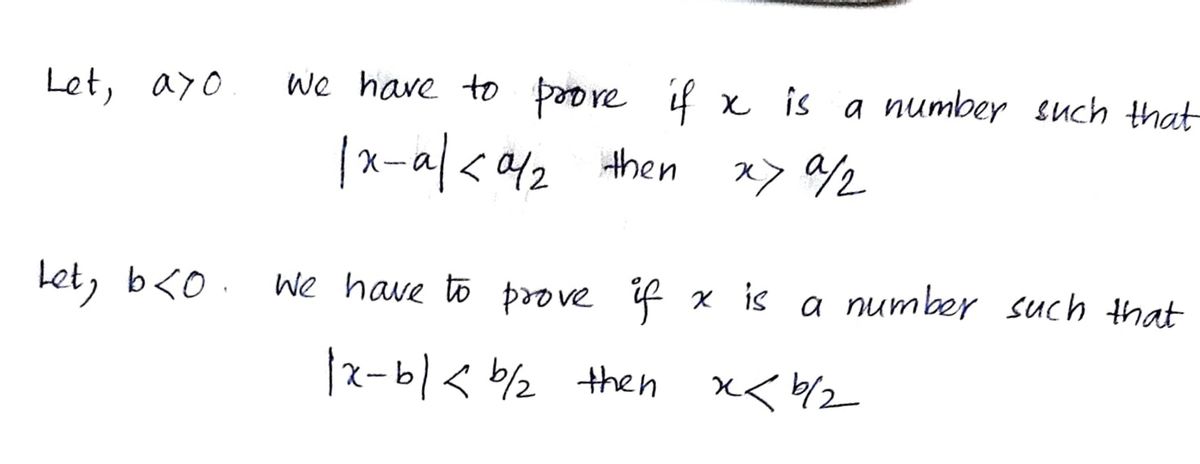 Let, a>0. We have to prove if x is a number such that
|x-a| < a/2 then x > a/2
Let, b<0. We have to prove if x is a number such that
|x-b| < b/2 then x < b/2